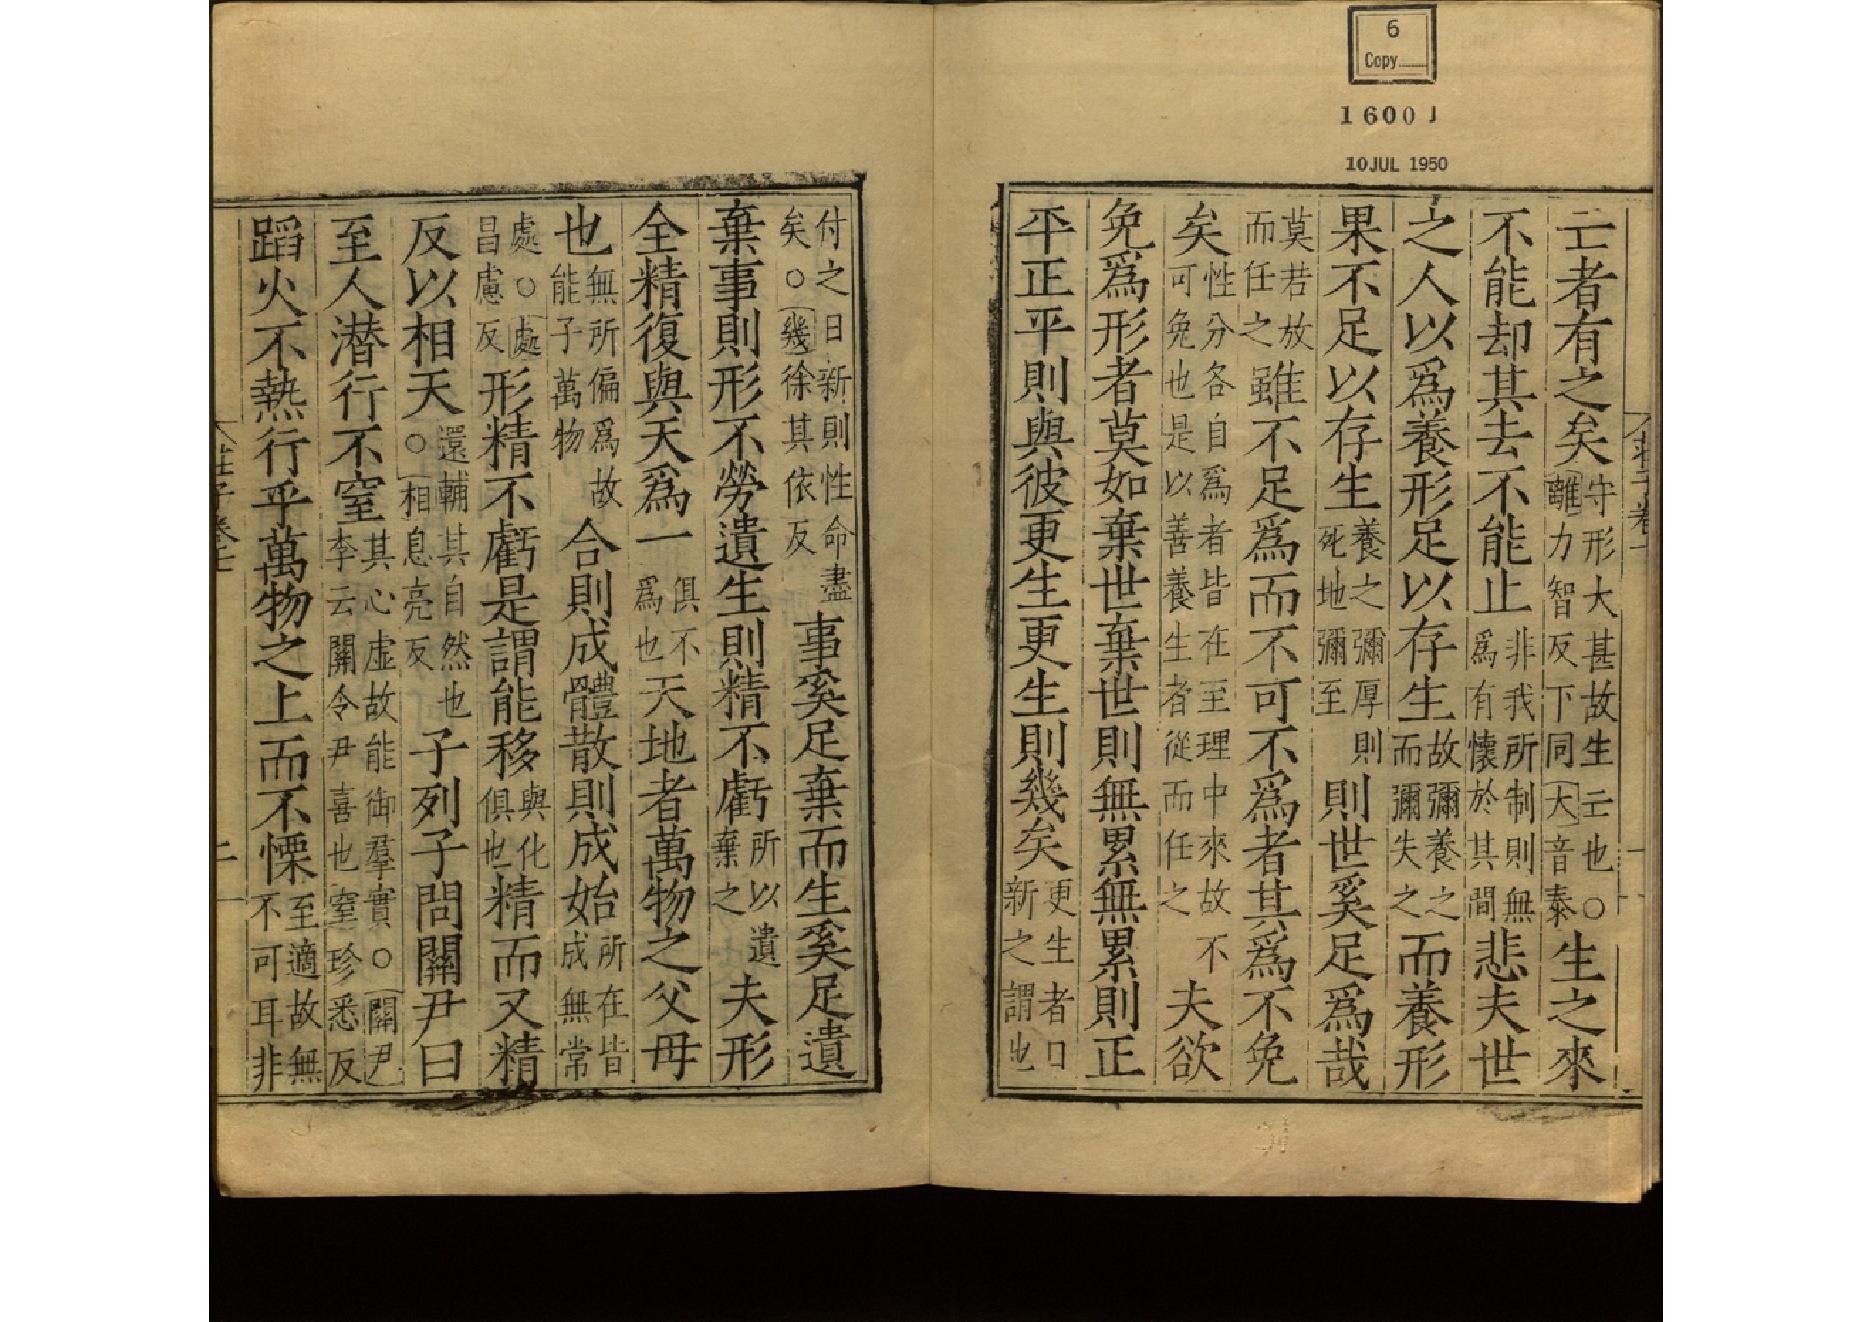 6
Copy
1600
10 JUL 1950
亡者有之矣守形大甚故生亡也○離力智反下同大音泰生之來
不能却其去不能止非我所制則無爲有懷於其間悲夫世
之人以爲養形足以存生故彌養之而彌失之而養形
果不足以存生養之彌厚則死地彌至則世奚足爲哉
莫若放而任之雖不足爲而不可不爲者其爲不免
矣性分各自爲者皆在至理中來故不可免也是以善養生者從而任之夫欲
免爲形者莫如棄世棄世則無累無累則正
平正平則與彼更生更生則幾矣更生者日新之謂也
付之日新則性命盡矣○幾徐其依反事奚足棄而生奚足遺
棄事則形不勞遺生則精不虧所以遺棄之夫形
全精復與天爲一俱不爲也天地者萬物之父母
也無所偏爲故能子萬物合則成體散則成始所在皆成無常
處○處昌慮反形精不虧是謂能移與化俱也精而又精
反以相天還輔其自然也○相息亮反子列子問關尹曰
至人潜行不窒其心虛故能御羣實○關尹李云關令尹喜也窒珍悉反
蹈火不熱行乎萬物之上而不慄至適故無不可耳非
莊子卷七
二